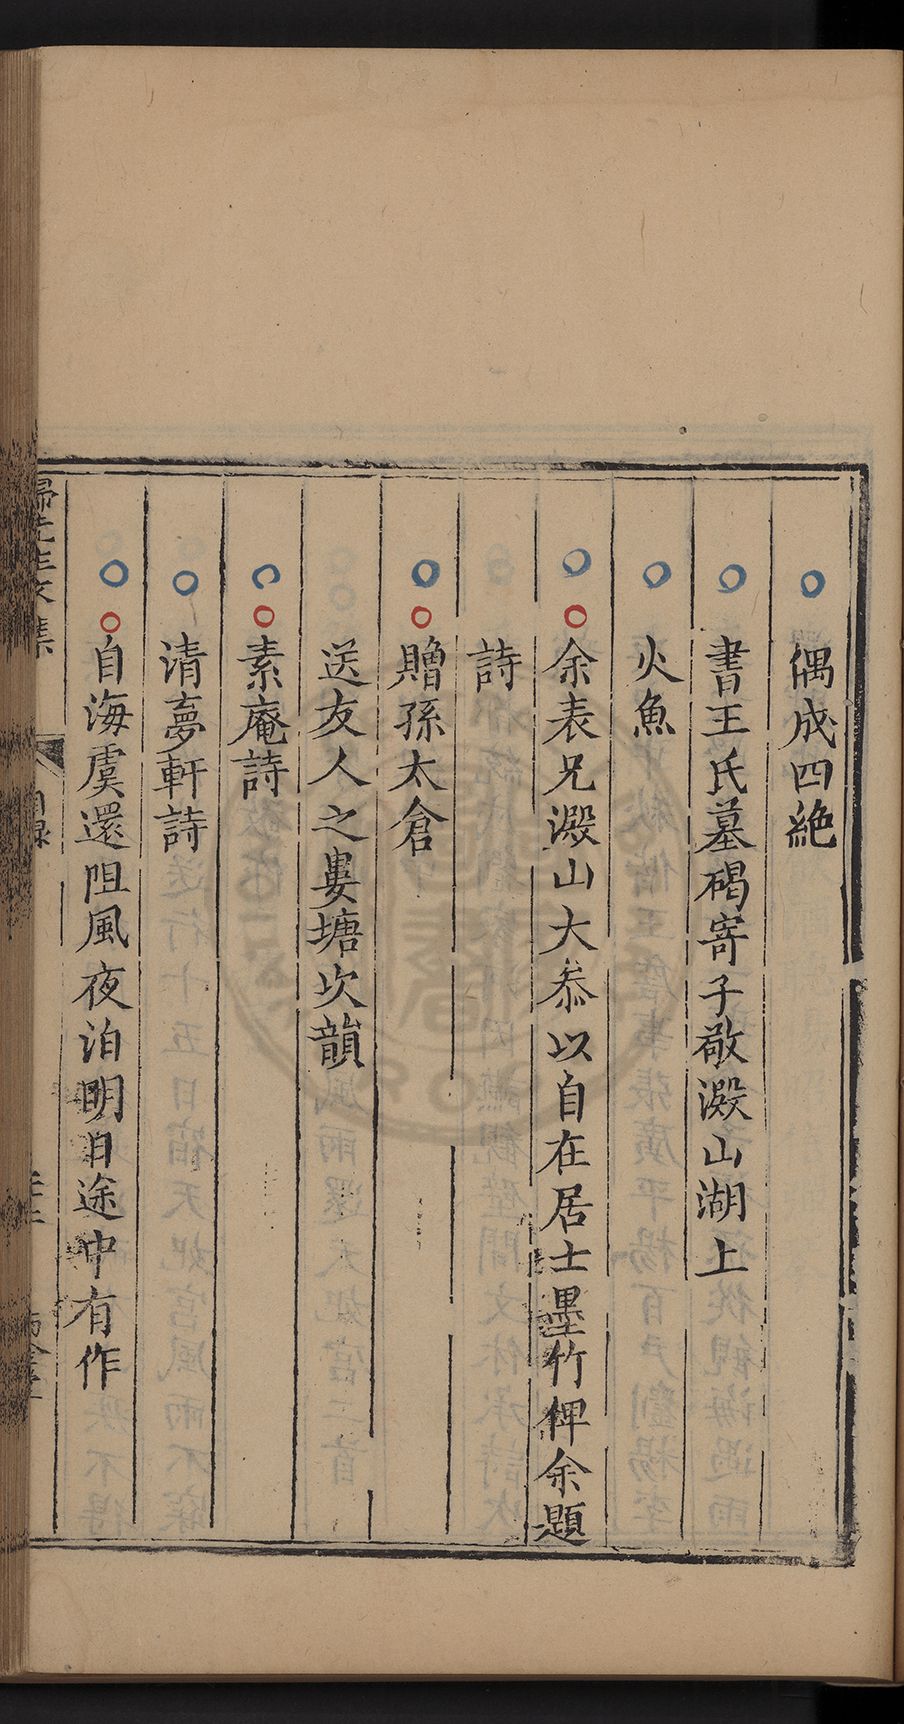 偶成四絶
書王氏墓碣寄子敬澱山湖上
火魚
余表兄澱山大叅以自在居士墨竹俾余題
詩
贈孫太倉
送友人之婁塘次韻
素庵詩
清夢軒詩
自海虞還阻風夜泊明日途中有作